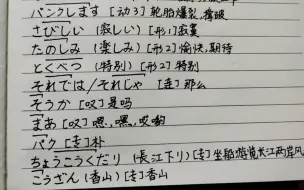 パンクします [动3] 轮胎爆裂,撑破
さびしい (寂しい) [形1] 寂寞
たのしみ (楽しみ) [形2] 愉快,期待
とくべつ (特別) [形2] 特别
それでは/それじゃ [连] 那么
そうか [叹] 是吗
まあ [叹] 嗯,嘿,哎哟
パク [专] 朴
ちょうこうくだり (長江下り) [专] 坐船游览长江两岸风
こうざん (香山) [专] 香山